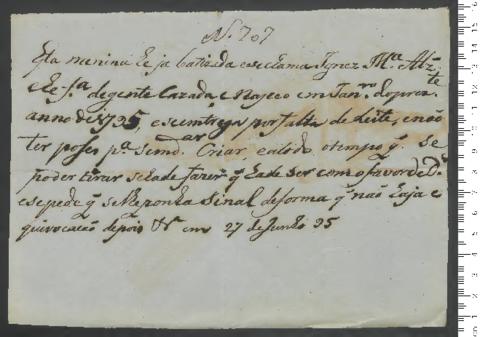 N. 707
Esta menina he ja batizada e se chama Ignez M.ª
e he f.ª de gente Cazada e Naçeo em Jan.ro do prez.te
anno de 1795, e se entrega por falta de Leite, e não
ter poses p.ª a mandar Criar, e a todo o tempo q. se
poder tirar se hade fazer q. hade ser com o favor de D.s
e se pede q. se lhe ponha Sinal de forma q. não haja e
quivocacaõ depois V.ª em 27 de Junho 95